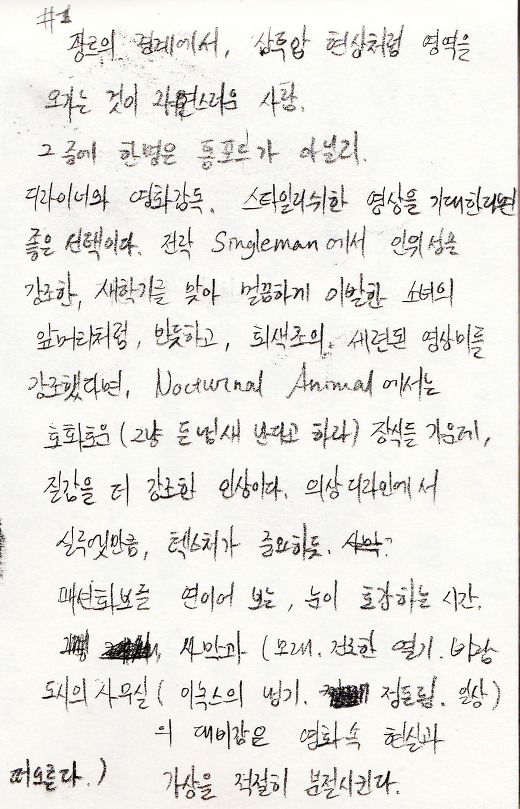 #1
장르의 경계에서, 삼투압 현상처럼 영역을
오가는 것이 자연스러운 사람.
그 중에 한명은 톰포드가 아닐런지.
디자이너와 영화감독. 스타일리쉬한 영상을 기대한다면
좋은 선택이다. 전작 Singleman에서 인위성을
강조한, 새학기를 맞아 멀끔하게 이발한 소녀의
앞머리처럼, 반듯하고, 회색조의. 세련된 영상미를
강조했다면, Nocturnal Animal에서는
호화로운 (그냥 돈냄새 난다고 하라) 장식들 가운데,
질감을 더 강조한 인상이다. 의상디자인에서
실루엣만큼, 텍스처가 중요하듯.
패션화보를 연이어 보는, 눈이 호강하는 시간.
사막과 (모래. 건조한 열기. 바람
도시의 사무실 ( 이녹스의 냉기. 정돈됨. 일상)
의 대비감은 영화속 현실과
떠오른다.) 가상을 적절히 분절시킨다.